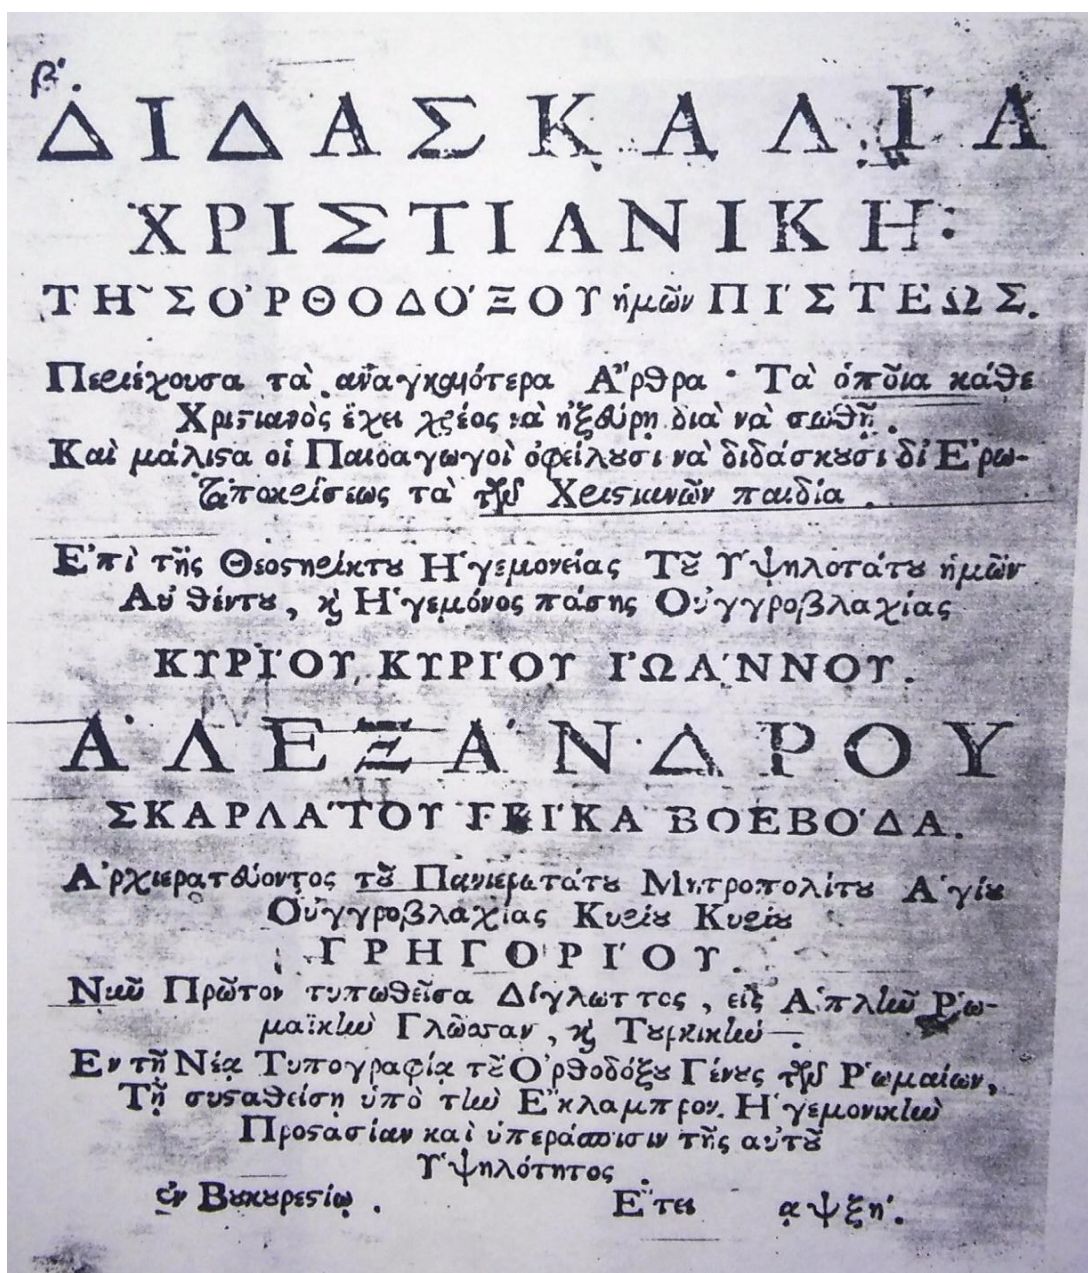 β'.
ΔΙΔΑΣΚΑΛΙΑ
ΧΡΙΣΤΙΑΝΙΚΗ:
ΤΗ͂Σ Ο᾿ΡΘΟΔΟ΄ΞΟΥ ἡμῶν ΠΙ΄ΣΤΕΩΣ.
Περιέχουσα τὰ ἀναγκαιότερα Ἄρθρα · Τὰ ὁποῖα κάθε
Χριϛιανὸς ἔχει χρέος νὰ ἠξεύρῃ διὰ νὰ σωθῇ.
Καὶ μάλιϛα οἱ Παιδαγωγοὶ ὀφείλουσι νὰ διδάσκουσι δι' Ἐρω-
ταποκρίσεως τὰ τῶν Χριϛιανῶν παιδία.
Ἐπὶ τῆς Θεοϛηρίκτου Ἡγεμονείας Τοῦ Ὑψηλοτάτου ἡμῶν
Αὐθέντου, ϗ Ἡγεμόνος πάσης Οὐγγροβλαχίας
ΚΥΡΙ΄ΟΥ ΚΥΡΙ΄ΟΥ Ι᾿ΩΑ΄ΝΝΟΥ.
Α᾿ΛΕΞΑ΄ΝΔΡΟΥ
ΣΚΑΡΛΑ΄ΤΟΥ ΓΚΙ΄ΚΑ ΒΟΕΒΟ΄ΔΑ.
Ἀρχιερατεύοντος τοῦ Πανιερωτάτου Μητροπολίτου Ἁγίου
Οὐγγροβλαχίας Κυρίου Κυρίου
ΓΡΗΓΟΡΙ΄ΟΥ.
Νῦν Πρῶτον τυπωθεῖσα Δίγλωττος, εἰς Ἁπλὴν Ῥω-
μαϊκὴν Γλῶσσαν, ϗ Τουρκικὴν.
Ἐν τῇ Νέᾳ Τυπογραφίᾳ τοῦ Ὀρθοδόξου Γένους τῶν Ῥωμαίων,
Τῇ συϛαθείσῃ ὑπὸ τὴν Ἔκλαμπρον Ἡγεμονικὴν
Προϛασίαν καὶ ὑπεράσπισιν τῆς αὐτοῦ
Ὑψηλότητος.
ἐν Βουκουρεϛίῳ. Ἔτει αψξη'.